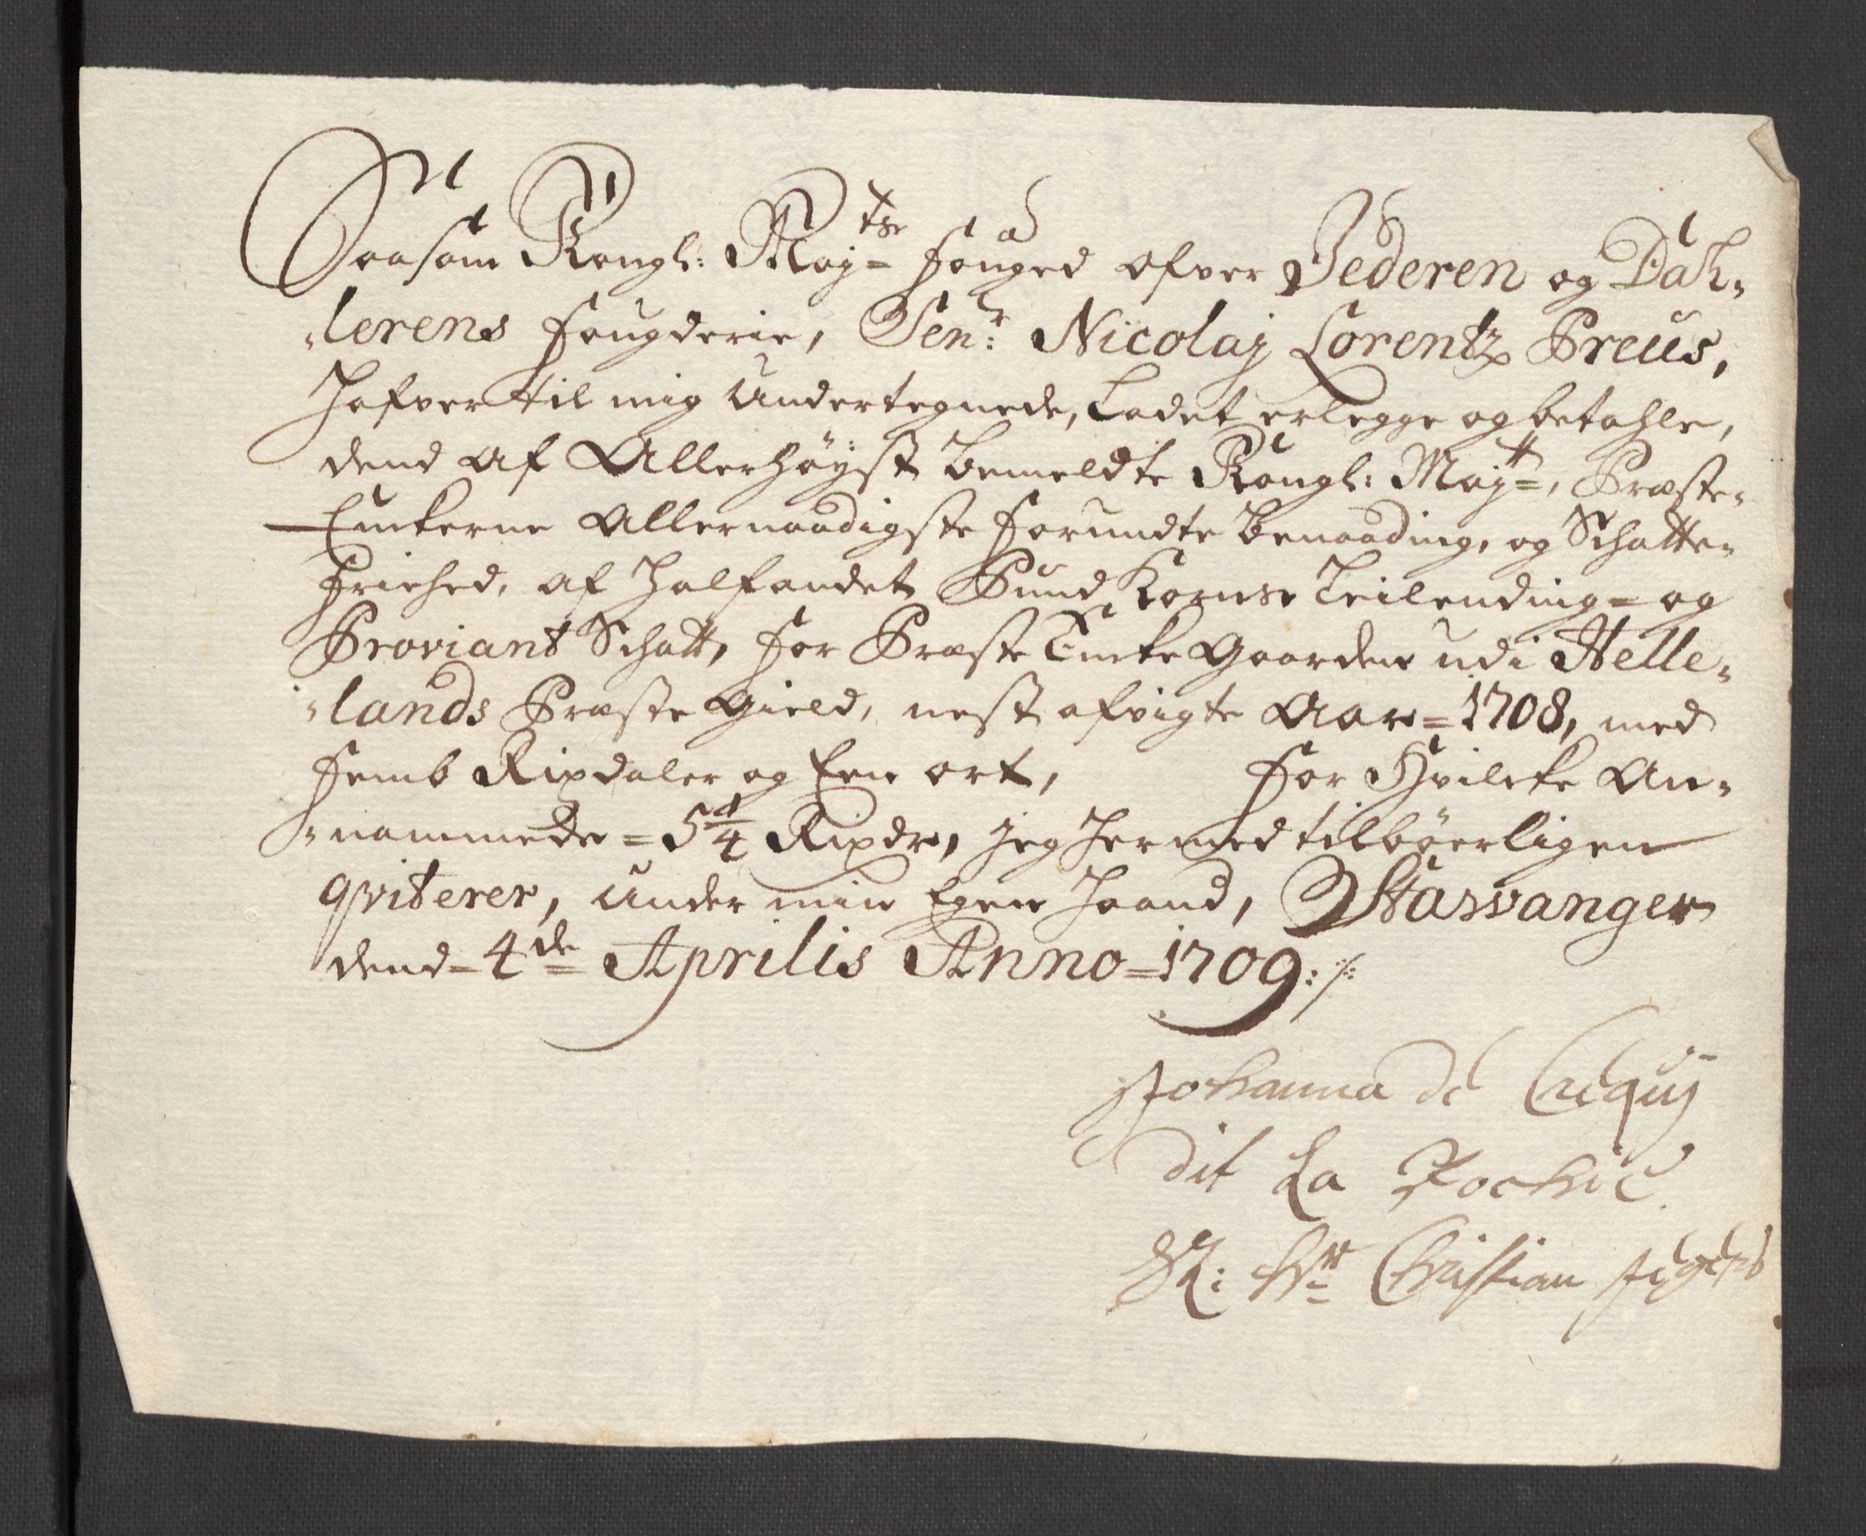 Saasom Kongl: Maytts Fouged ofver Jederen og Dah-
-lerens Fougderie, Senr: Nicolaj Lorentz Preus,
Hafver til mig Undertegnede, Ladet erlegge og betahle,
dend af Allerhøyst bemeldte Kongl: Maytt, Præste-
Enkerne Allernaadigste Forundte benaading, og Schatte-
Friehed, af halfandet Pund Korns Leilending- og
Proviant Schatt, for Præste Encke Gaarden udi Helle-
-lands Præste Gield, nest afvigte Aar = 1708, med
Femb Rixdaler og Een ort, for Hvilcke An-
-nammede = 5 1/4 Rixdr, jeg hermed tilbøerligen
qviterer, Under min Egen Haand, Stavanger
dend = 4de Aprilis Anno = 1709 :/:
Johanna de Crequij
dit La Rochie
Christian